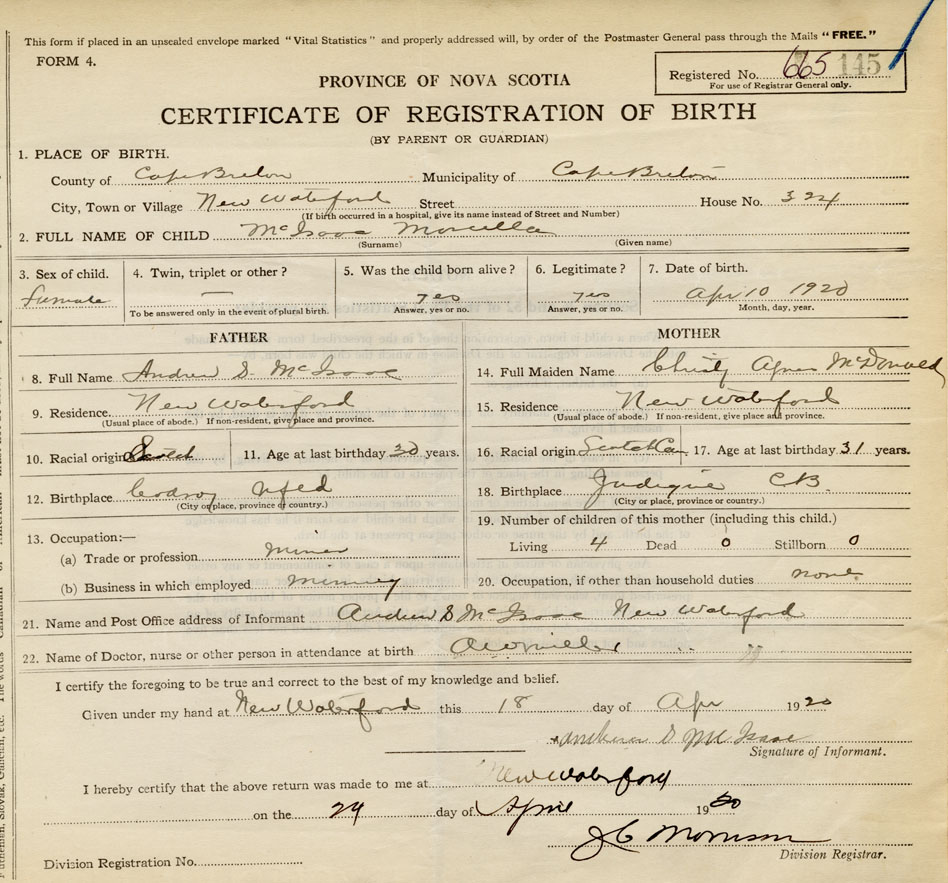 This form if placed in an unsealed envelope marked "Vital Statistics" and properly addressed will, by order of the Postmaster General pass through the Mails "FREE."
FORM 4.
Registered No. 665 145
For use of Registrar General only.
PROVINCE OF NOVA SCOTIA
CERTIFICATE OF REGISTRATION OF BIRTH
(BY PARENT OR GUARDIAN)
1. PLACE OF BIRTH.
County of Cape Breton Municipality of Cape Breton
City, Town or Village New Waterford Street House No. 324
(If birth occurred in a hospital, give its name instead of Street and Number)
2. FULL NAME OF CHILD McIsaac Morcella
(Surname) (Given name)
3. Sex of child. 4. Twin, triplet or other? 5. Was the child born alive? 6. Legitimate? 7. Date of birth.
female — yes yes Apr 10 1920
To be answered only in the event of plural birth. Answer, yes or no. Answer, yes or no. Month, day, year.
FATHER MOTHER
8. Full Name Andrew S. McIsaac 14. Full Maiden Name Christy Agnes McDonald
9. Residence New Waterford 15. Residence New Waterford
(Usual place of abode.) If non-resident, give place and province. (Usual place of abode.) If non-resident, give place and province.
10. Racial origin Scotch 11. Age at last birthday 30 years. 16. Racial origin Scotch 17. Age at last birthday 31 years.
12. Birthplace Codroy Nfld 18. Birthplace Judique C.B.
(City or place, province or country.) (City or place, province or country.)
13. Occupation:— 19. Number of children of this mother (including this child.)
(a) Trade or profession miner Living 4 Dead 0 Stillborn 0
(b) Business in which employed Mining 20. Occupation, if other than household duties none
21. Name and Post Office address of Informant Andrew S McIsaac New Waterford
22. Name of Doctor, nurse or other person in attendance at birth
I certify the foregoing to be true and correct to the best of my knowledge and belief.
Given under my hand at New Waterford this 18 day of Apr 1920
McIsaac
Signature of Informant.
I hereby certify that the above return was made to me at New Waterford
on the 29 day of April 19
J C Morrison
Division Registrar.
Division Registration No.